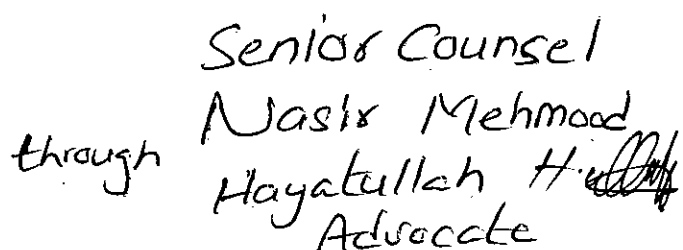 Senior Counsel
Nasir Mehmood
through Hayatullah
Advocate